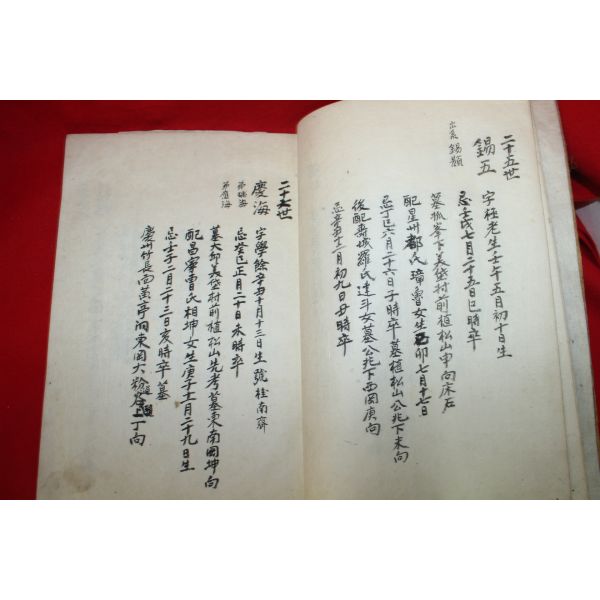 二十五世
錫五
錫顯
字極老生壬午五月初十日生
忌壬戌七月二十五日巳時卒
墓狐峯下美垈村前植松山申向床石
配星州都氏璋魯女生己卯七月十七日
忌丁巳六月二十六日子時卒墓植松山公兆下未向
後配壽城羅氏達斗女墓公兆下西岡庚向
忌辛丑十二月初九日丑時卒
二十六世
慶海
字學餘辛丑十月十三日生 號桂南齋
忌癸巳正月二十日未時卒
墓大邱美垈村前植松山先考墓東南岡坤向
配昌寧曺氏相坤女生庚子十一月二十九日生
忌壬子二月二十三日亥時卒 墓
慶州竹長面萬亭洞東岡大粉峯上丁向